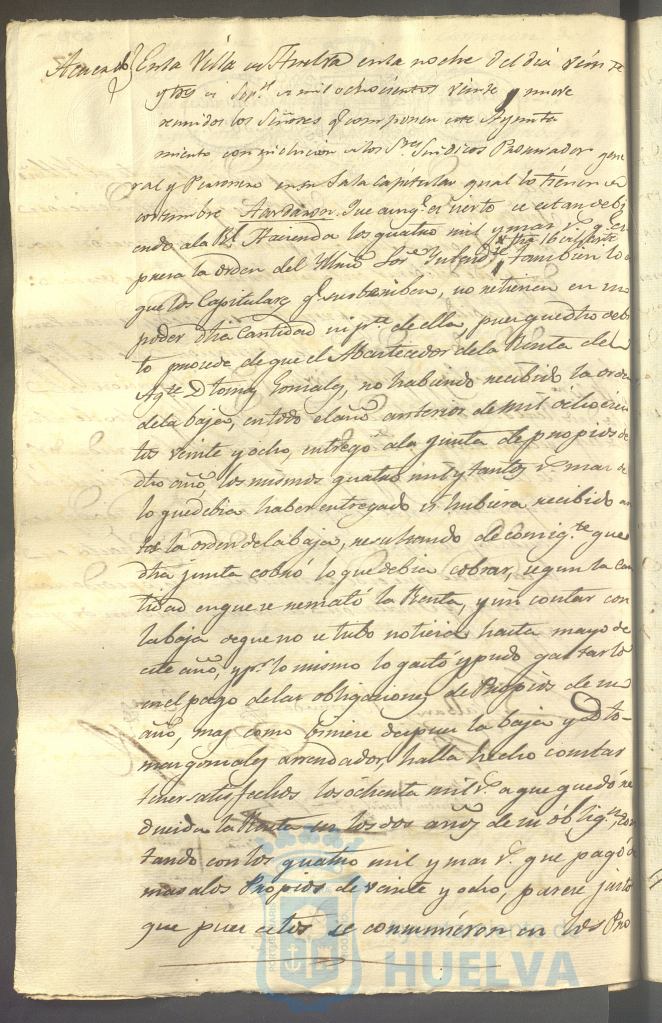 Acuerdo} En la Villa de Huelva en la noche del dia veinte
y tres de Sepre. de mil ochocientos veinte y nueve
reunidos los Señores qe. componen este Ayunta
miento con inclusion de los Sres. Sindicos Procurador gene
ral y Personero en su Sala Capitular qual lo tienen de
costumbre Acordaron: Que aunqe. es cierto se estan debi
endo a la Rl. Hacienda los quatro mil y mas rs. qe. ex
presa la orden del Yltmo. Sor. Intendte. tambien lo es
que los Capitulares qe. subscriben, no retienen en su
poder dha cantidad ni pte. de ella, pues que dho debi
to procede de que el Abasteador de la Renta del
Agte. D. tomas Gonzalez, no habiendo recibido la orden
de la baja, en todo el año anterior de mil ochocien
tos veinte y ocho, entregó a la junta de propios de
dho año, los mismos quatro mil y tantos rs. mas de
lo que debia haber entregado si hubiera recibido an
tes la orden de la baja, resultando de consigte. que
dha junta cobró lo que debia cobrar, segun la can
tidad en que se remató la Renta, y sin contar con
la baja de que no se tubo noticia hasta mayo de
este año, y pr. lo mismo lo gastó y pudo gastarlo
en el pago de las obligaciones de Propios de su
año, mas como viniese despues la baja y D. to
mas gonzalez arrendador halla hecho constar
tener satisfechos los ochenta mil rs. a que quedó re
ducida la Renta en los dos años de su obligon. con
tando con los quatro mil y mas rs. que pagó de
mas a los Propios de veinte y ocho, parece justo
que pues estos se consumieron en los Pro
HUELVA